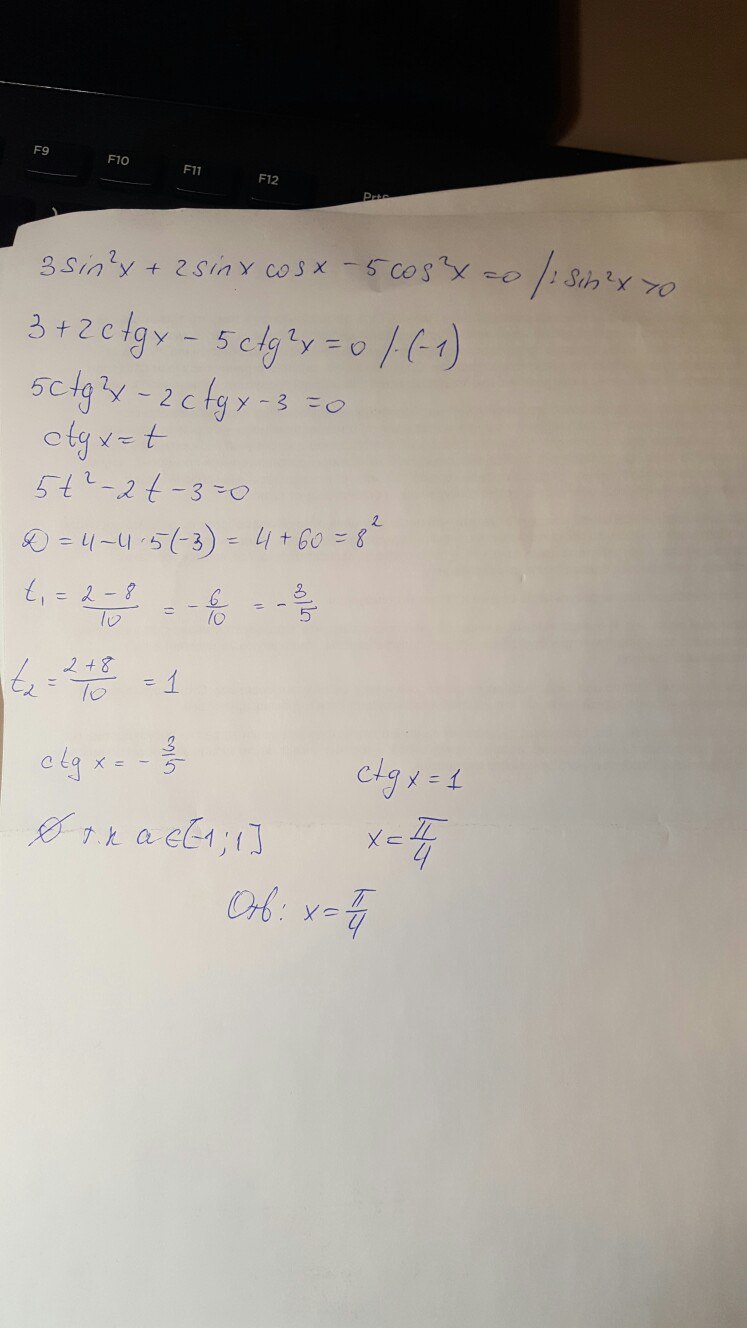 F9 F10 F11 F12
3sin²x + 2sinx cosx - 5cos²x = 0 /: sin²x >0
3 + 2ctgx - 5ctg²x = 0 /·(-1)
5ctg²x - 2ctgx - 3 = 0
ctgx = t
5t² - 2t - 3 = 0
D = 4 - 4·5(-3) = 4 + 60 = 8²
t₁ = (2-8)/10 = -6/10 = -3/5
t₂ = (2+8)/10 = 1
ctg x = -3/5 ctg x = 1
∅ т.к a∈[-1;1] x = π/4
Отв: x = π/4